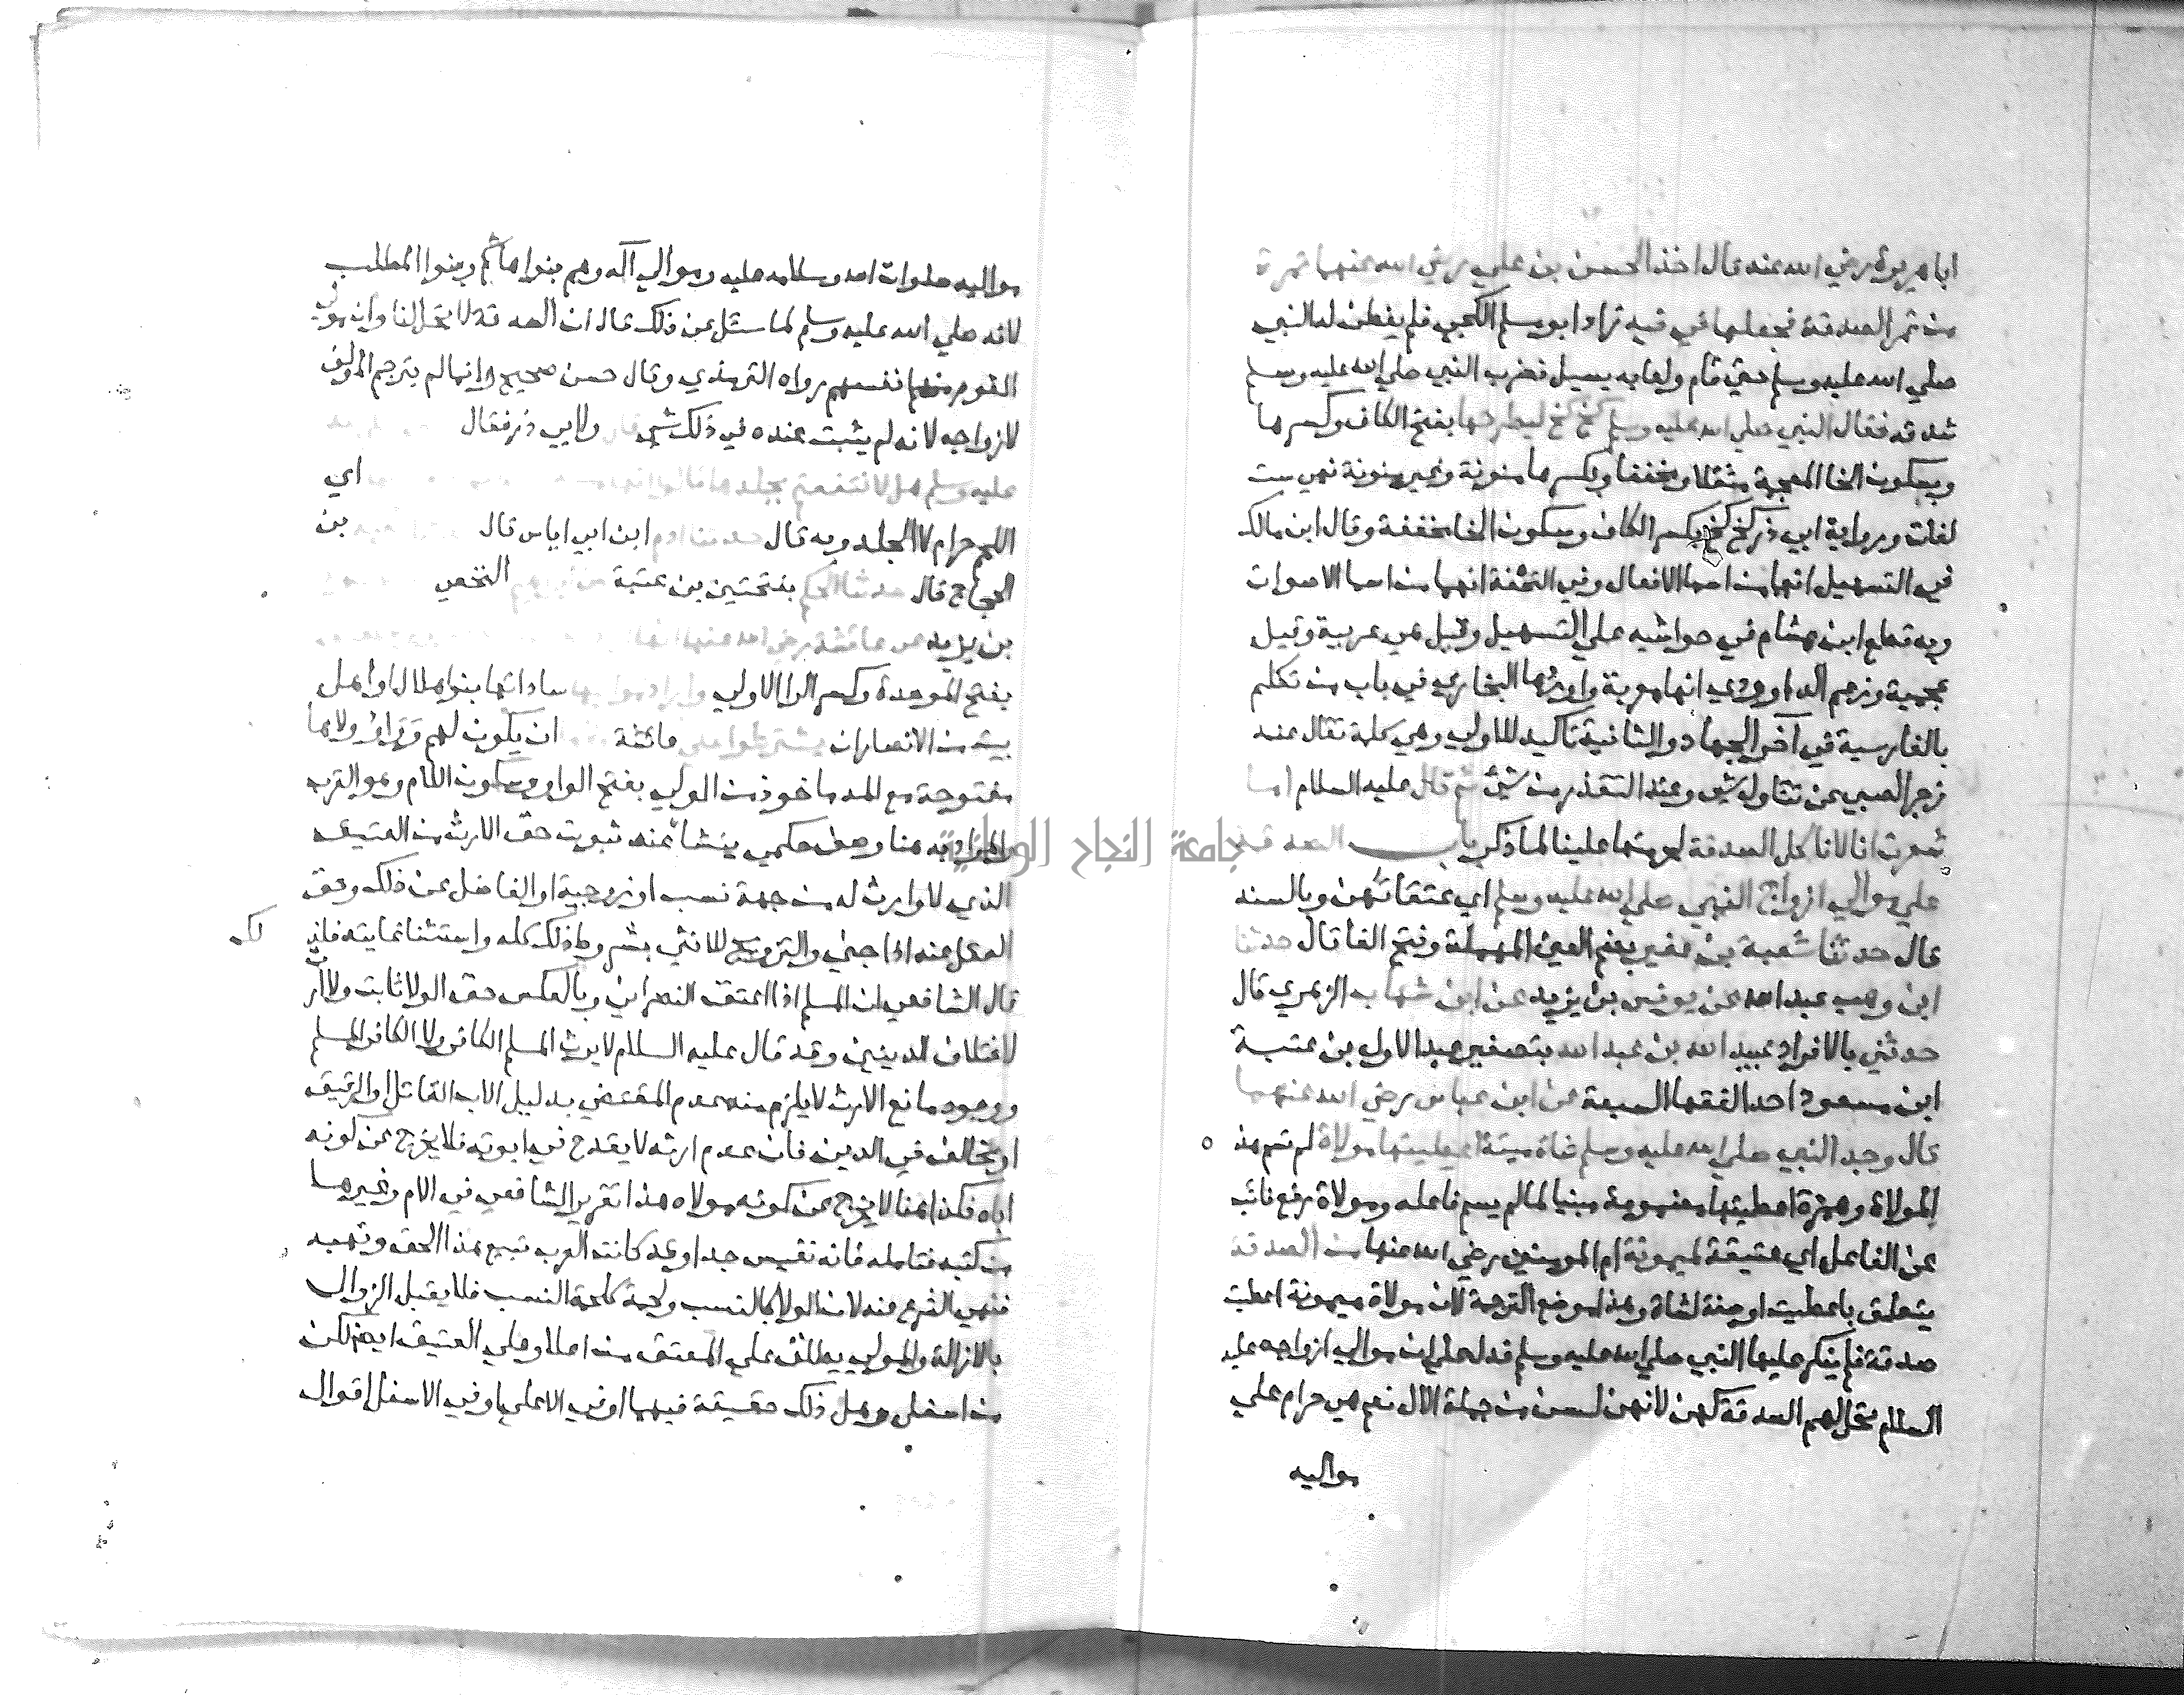 ابا هريرة رضي الله عنه قال اخذ الحسن بن علي رضي الله عنهما تمرة
من تمر الصدقة فجعلها في فيه زاد ابو مسلم الكجي فلم يفطن له النبي
صلي الله عليه وسلم حتي قام ولعابه يسيل فضرب النبي صلي الله عليه وسلم
شدقه فقال النبي صلي الله عليه وسلم كخ كخ ليطرحها بفتح الكاف وكسرها
وبسكون الخا المعجمة مثقلا ومخففا وبكسرها منونة وغير منونة فهي ست
لغات ورواية ابي ذر كخ كخ بكسر الكاف وسكون الخا مخففة وقال ابن مالك
في التسهيل انها من اسما الافعال وفي التحفة انها من اسما الاصوات
وبه قطع ابن هشام في حواشيه علي التسهيل وقيل هي عربية وقيل
عجمية وزعم الداوودي انها معربة واوردها البخاري في باب من تكلم
بالفارسية في آخر الجهاد والثانية تاكيد للاولي وهي كلمة تقال عند
زجر الصبي عن تناول شي وعند التقذر من شي ثم قال عليه السلام اما
شعرت انا لا ناكل الصدقة لحرمتها علينا لما ذكر باب الصدقة
علي موالي ازواج النبي صلي الله عليه وسلم اي عتقائهن وبالسند
قال حدثنا سعيد بن عفير بضم العين المهملة وفتح الفا قال حدثنا
ابن وهب عبد الله عن يونس بن يزيد عن ابن شهاب الزهري قال
حدثني بالافراد عبيد الله بن عبد الله بتصغير عبد الاول بن عتبة
ابن مسعود احد الفقها السبعة عن ابن عباس رضي الله عنهما
قال وجد النبي صلي الله عليه وسلم شاة ميتة اعطيتها مولاة لم تسم هذه
المولاة وهمزة اعطيتها مضمومة مبنيا لما لم يسم فاعله ومولاة رفع نائب
عن الفاعل اي عتيقة لميمونة ام المومنين رضي الله عنها من الصدقة
يتعلق باعطيت او صفة لشاة وهذا موضع الترجمة لان مولاة ميمونة اعطيت
صدقة فلم ينكر عليها النبي صلي الله عليه وسلم فدل علي ان موالي ازواجه عليه
السلام تحل لهم الصدقة كهن لانهن لسن من جملة الآل نعم هي حرام علي
مواليه
مواليه صلوات الله وسلامه عليه وموالي آله وهم بنوا هاشم وبنوا المطلب
لانه صلي الله عليه وسلم لما سئل عن ذلك قال ان الصدقة لا تحل لنا وان مولي
القوم من انفسهم رواه الترمذي وقال حسن صحيح وانما لم يترجم المولف
لازواجه لانه لم يثبت عنده في ذلك شي ولابي ذر فقال
عليه وسلم هل لا انتفعتم بجلدها قالوا انها اي
اللحم حرام لا الجلد وبه قال حدثنا ادم ابن ابي اياس قال بن
الحجاج قال حدثنا الحكم بفتحتين بن عتبة النخعي
بن يزيد عن عائشة رضي الله عنها انها
بفتح الموحدة وكسر الرا الاولي واراد مواليها ساداتها بنوا هلال او اهل
بيت من الانصار ان يشترطوا علي عائشة ان يكون لهم ولاؤها
مفتوحة مع المد ماخوذ من الولي بفتح الواو وسكون اللام وهو القرب
والمراد به هنا وصف حكمي ينشا عنه ثبوت حق الارث من العتيق
الذي لا وارث له من جهة نسب او زوجية او الفاضل عن ذلك وحق
العقل عنه اذا جني والتزويج للانثي بشروط ذلك كله
قال الشافعي ان المسلم اذا اعتق النصراني وبالعكس حق الولا ثابت ولا ارث
لاختلاف الدينين وقد قال عليه السلام لا يرث المسلم الكافر ولا الكافر المسلم
ووجود مانع الارث لا يلزم منه عدم المقتضي بدليل الاب القاتل او الرقيق
او مخالف في الدين فان عدم ارثه لا يقدح في ابوته فلا يخرج عن كونه
اباه فكذا هنا لا يخرج عن كونه مولاه هذا تقرير الشافعي في الام وغيرها
من كتبه فتامله فانه نفيس جدا وقد كانت العرب تبيع هذا الحق وتهبه
فنهي الشرع عنه لان الولا كالنسب ولحمة كلحمة النسب فلا يقبل الزوال
بالازالة والمولي يطلق علي المعتق من اعلا وعلي العتيق ايضا لكن
من اسفل وهل ذلك حقيقة فيهما او في الاعلي او في الاسفل اقوال
جامعة النجاح الوطنية